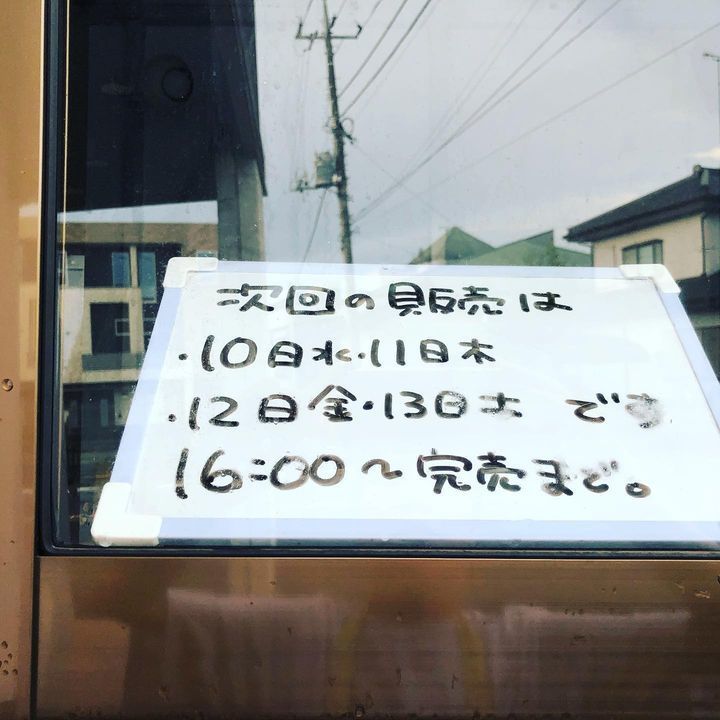 次回の販売は
・10日水・11日木
・12日金・13日土 です
16:00〜完売まで。